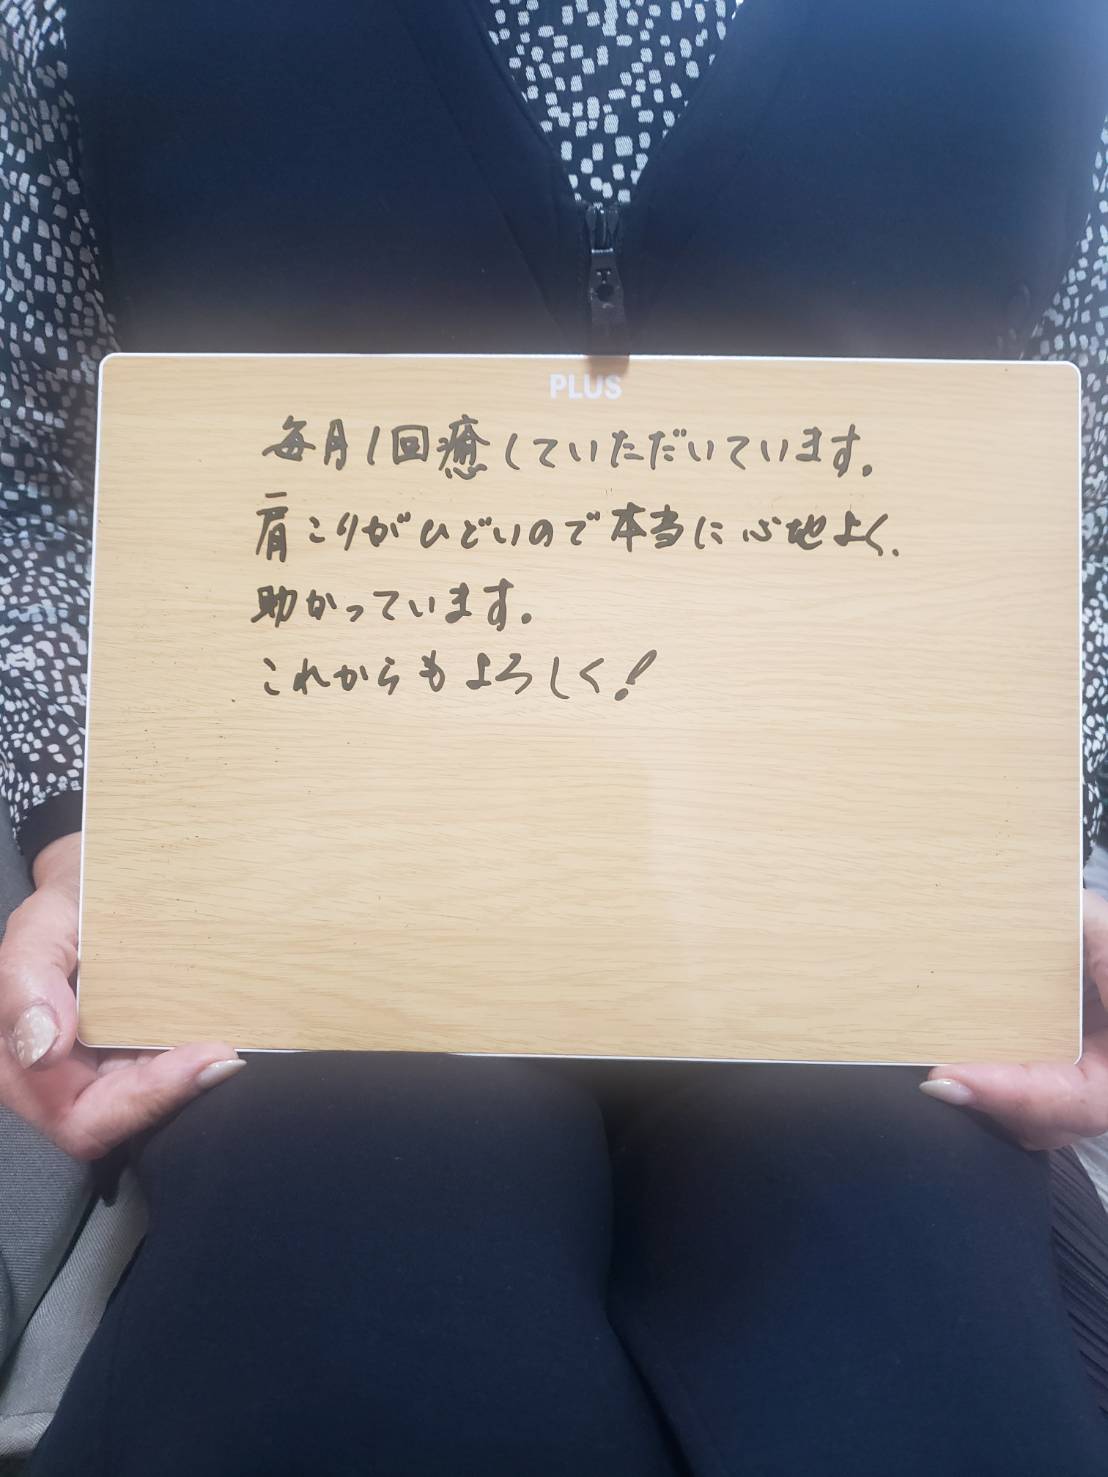 PLUS
毎月1回癒していただいています。
肩こりがひどいので本当に心地よく、
助かっています。
これからもよろしく!